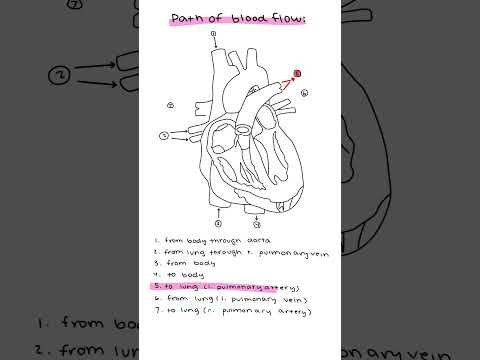 Path of blood flow:
1. from body through aorta
2. from lung through r. pulmonary vein
3. from body
4. to body
5. to lung (l. pulmonary artery)
6. from lung (l. pulmonary vein)
7. to lung (r. pulmonary artery)